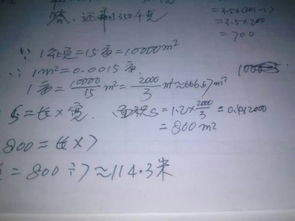 = 700
∵ 1公顷=15亩=10000m²
∴ 1m²=0.0015亩
1亩=10000/15 m²=2000/3 m²≈666.67m²
S=长×宽. 面积S=1.2×2000/3=0.4×2000
=800m²
800=长×7
=800÷7≈114.3米